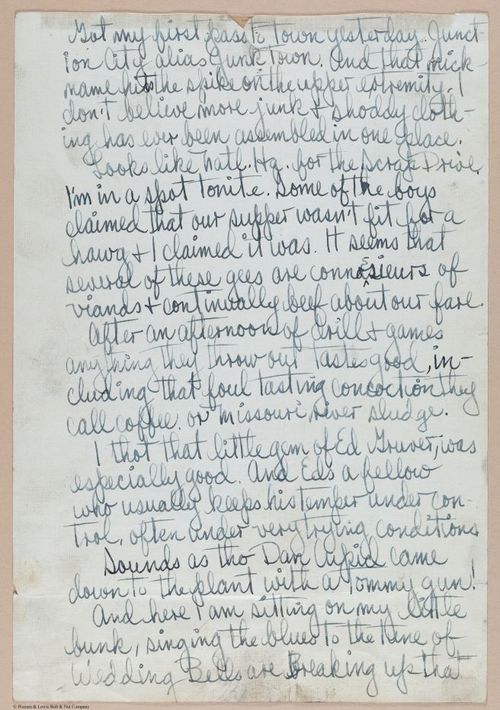 Got my first pass to Town yesterday. Junct-
ion City alias Junk Town. And that nick-
name hits the spike on the upper extremity. I
don't believe more junk & shoddy cloth-
ing has ever been assembled in one place.
Looks like Natl. Hq. for the Scrap Drive.
I'm in a spot tonite. Some of the boys
claimed that our supper wasn't fit for a
hawg & I claimed it was. It seems that
several of these gees are connosieurs of
viands & continually beef about our fare.
After an afternoon of drill & games
anything they throw out tastes good, in-
cluding that foul tasting concoction they
call coffee. or Missouri River sludge.
I thot that little gem of Ed Gruver, was
especially good. And Eds a fellow
who usually keeps his temper under con-
trol, often under very trying conditions
Sounds as tho Dan Cupid came
down to the plant with a Tommy gun!
And here I am sitting on my little
bunk, singing the blues to the tune of
Wedding Bells are Breaking up that
© Pioneers & Lewis Bolt & Nut Company